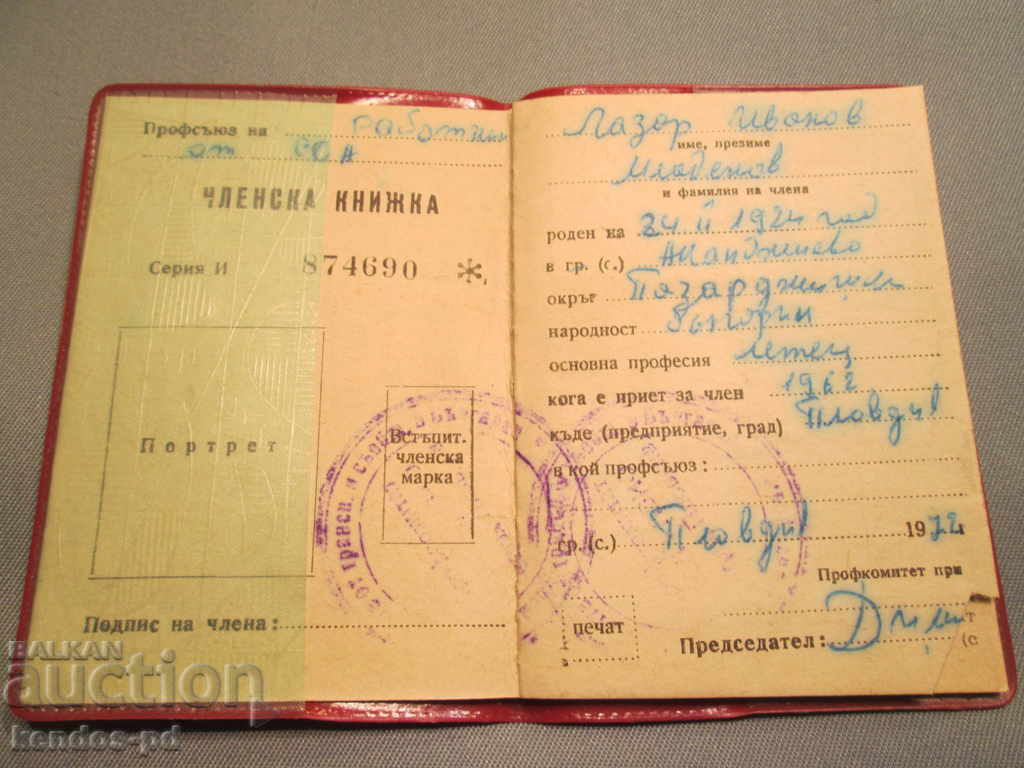 Профсъюз на работници
от СОА
ЧЛЕНСКА КНИЖКА
Серия И 874690 *
Портрет
Встъпит.
членска
марка
Подпис на члена:
Лазар Иванов
име, презиме
Младенов
и фамилия на члена
роден на 24 II 1924 год
в гр. (с.) Аканджиево
окръг Пазарджишки
народност българин
основна професия летец
кога е приет за член 1962
къде (предприятие, град) Пловдив
в кой профсъюз:
гр. (с.) Пловдив 1972 г.
Профкомитет при
печат
Председател:
BALKAN
auction
kendos-pd